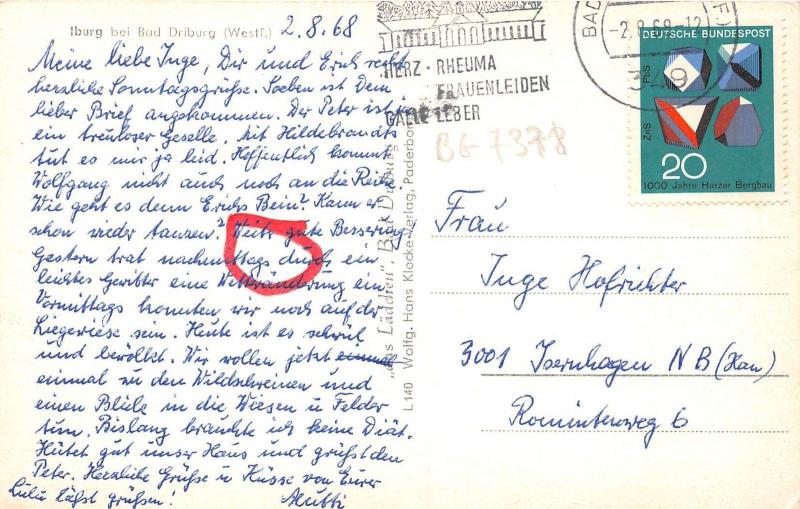 Iburg bei Bad Driburg (Westf.)
2.8.68
Meine liebe Inge, Dir und Erich recht
herzliche Sonntagsgrüße. Soeben ist Dein
lieber Brief angekommen. Der Peter ist ja
ein treuloser Geselle. Mit Hildebrandts
tut es mir ja leid. Hoffentlich kommt
Wolfgang nicht auch noch an die Reihe.
Wie geht es denn Erichs Bein? Kann er
schon wieder tanzen? Weiter gute Besserung.
Gestern trat nachmittags durch ein
leichtes Gewitter eine Wetteränderung ein
Vormittags konnten wir noch auf der
Liegewiese sein. Heute ist es schwül
und bewölkt. Wir wollen jetzt
einmal zu den Wildschweinen und
einen Blick in die Wiesen u Felder
tun. Bislang brauchte ich keine Diät.
Hütet gut unser Haus und grüßt den
Peter. Herzliche Grüße u Küsse von Eurer
Lulu läßt grüßen! Mutti
"Das Lädchen", Bad Driburg
L 140 Wolfg. Hans Klocke-Verlag, Paderborn
HERZ · RHEUMA
FRAUENLEIDEN
GALLE LEBER
BAD
-2.8.68-12
349
DEUTSCHE BUNDESPOST
PbS
ZnS
20
1000 Jahre Harzer Bergbau
BG 7378
Frau
Inge Hofrichter
3001 Isernhagen NB (Han)
Romintenweg 6